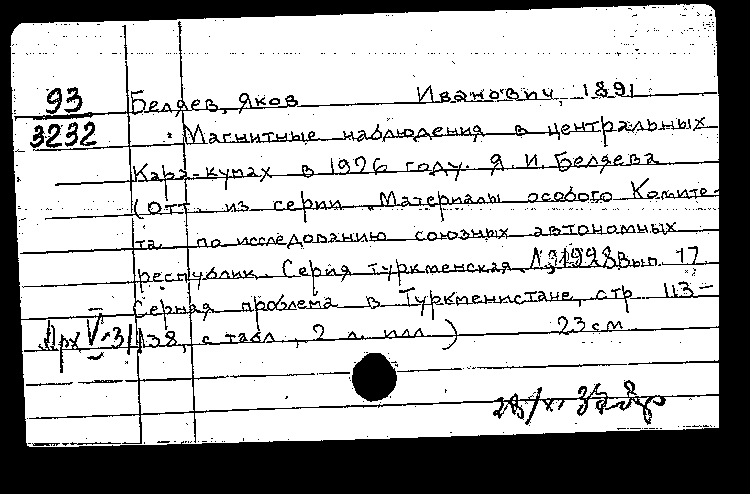 93 Беляев, Яков Иванович, 1891
3232 Магнитные наблюдения в центральных
Кара-кумах в 1926 году. Я. И. Беляева
(отт. из серии Материалы особого Комите-
та по исследованию союзных автономных
республик. Серия туркменская, Л, 1928 Вып. 17
Серная проблема в Туркменистане, стр 113-
Арх V-31 138, с табл., 2 л. илл.) 23 см